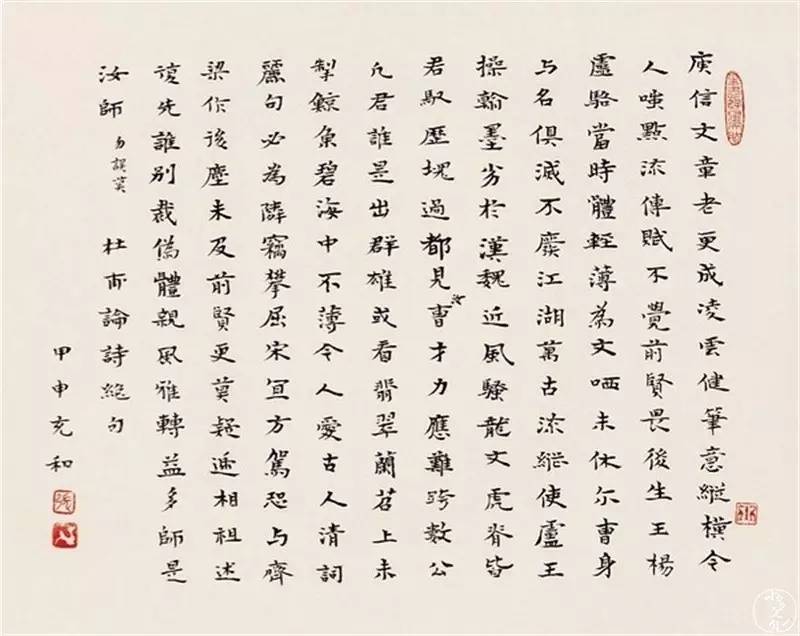 庾信文章老更成凌雲健筆意縱橫今
人嗤點流傳賦不覺前賢畏後生王楊
盧駱當時體輕薄為文哂未休尔曹身
与名俱滅不廢江湖萬古流縱使盧王
操翰墨劣於漢魏近風騷龍文虎脊皆
君馭歷塊過都見汝曹才力應難跨數公
凡君誰是出群雄或看翡翠蘭苕上未
掣鯨魚碧海中不薄今人愛古人清詞
麗句必為隣竊攀屈宋宜方駕恐与齊
梁作後塵未及前賢更莫疑遞相祖述
復先誰別裁偽體親風雅轉益多師是
汝師 勿誤莫 杜甫論詩絕句
甲申充和